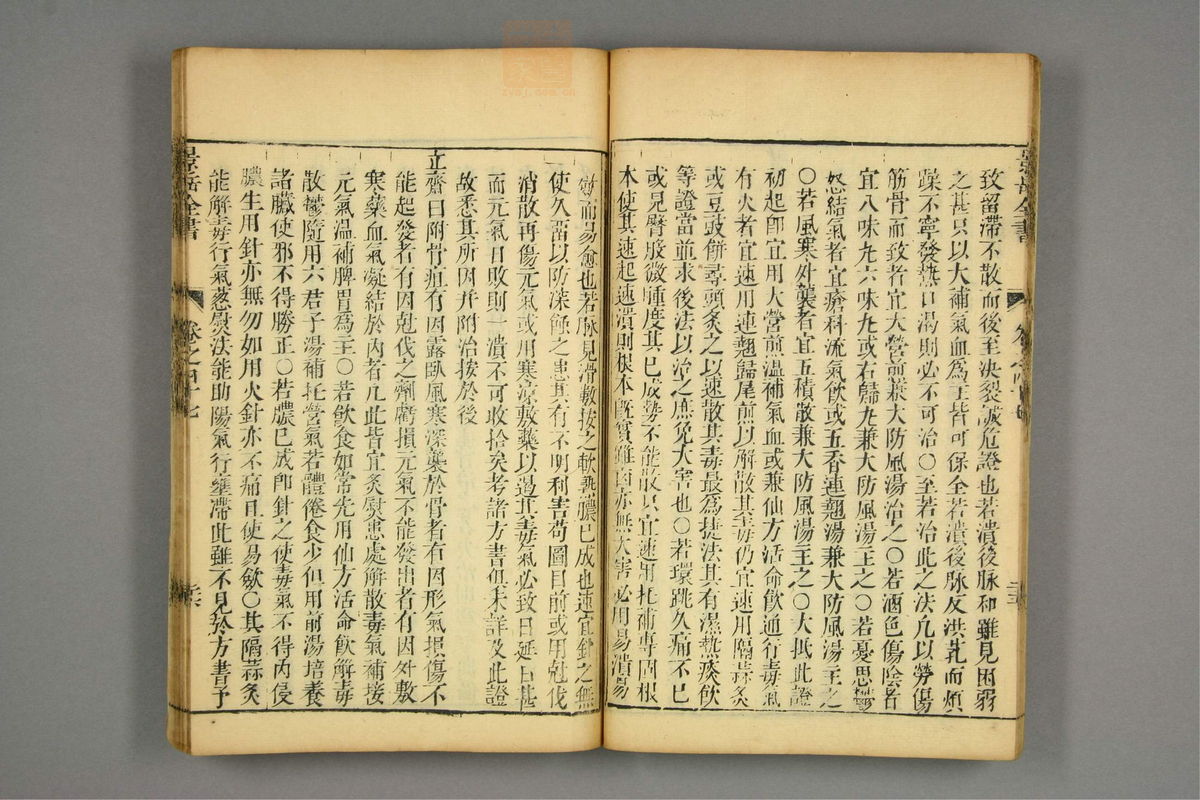 致留滯不散而後至決裂誠危證也若潰後脉和雖見困弱
之甚只以大補氣血爲主皆可保全若潰後脉反洪乳而煩
躁不寧發熱口渴則必不可治○至若治此之法凡以勞傷
筋骨而致者宜大營煎兼大防風湯治之○若酒色傷陰者
宜八味丸六味丸或右歸丸兼大防風湯主之○若憂思鬱
怒結氣者宜瘡科流氣飲或五香連翹湯兼大防風湯主之
○若風寒外襲者宜五積散兼大防風湯主之○大抵此證
初起卽宜用大營煎溫補氣血或兼仙方活命飲通行毒氣
有火者宜速用連翹歸尾煎以解散其毒仍宜速用隔蒜灸
或豆豉餅㝷頭灸之以速散其毒最爲捷法其有濕熱痰飲
等證當並求後法以治之庶免大害也○若環跳久痛不已
或見臀股微腫度其已成勢不能散只宜速用托補專固根
本使其速起速潰則根本旣實雖潰亦無大害必用易潰易
斂而易愈也若脉見滑數按之軟熟膿已成也速宜針之無
使久留以防深蝕之患其有不明利害苟圖目前或用尅伐
消散再傷元氣或用寒涼敷藥以遏其毒氣必致日延日甚
而元氣日敗則一潰不可收拾矣考諸方書俱未詳及此證
故悉其所因并附治按於後
立齋曰附骨疽有因露臥風寒深襲於骨者有因形氣損傷不
能起發者有因尅伐之劑虧損元氣不能發出者有因外敷
寒藥血氣凝結於內者凡此皆宜灸熨患處解散毒氣補接
元氣溫補脾胃爲主○若飲食如常先用仙方活命飲解毒
散鬱隨用六君子湯補托營氣若體倦食少但用前湯培養
諸臟使邪不得勝正○若膿已成卽針之使毒氣不得內侵
膿生用針亦無勿如用火針亦不痛且使易歛○其隔蒜灸
能解毒行氣葱熨法能助陽氣行壅滯此雖不見於方書予
景岳全書
卷之四十七
景岳全書